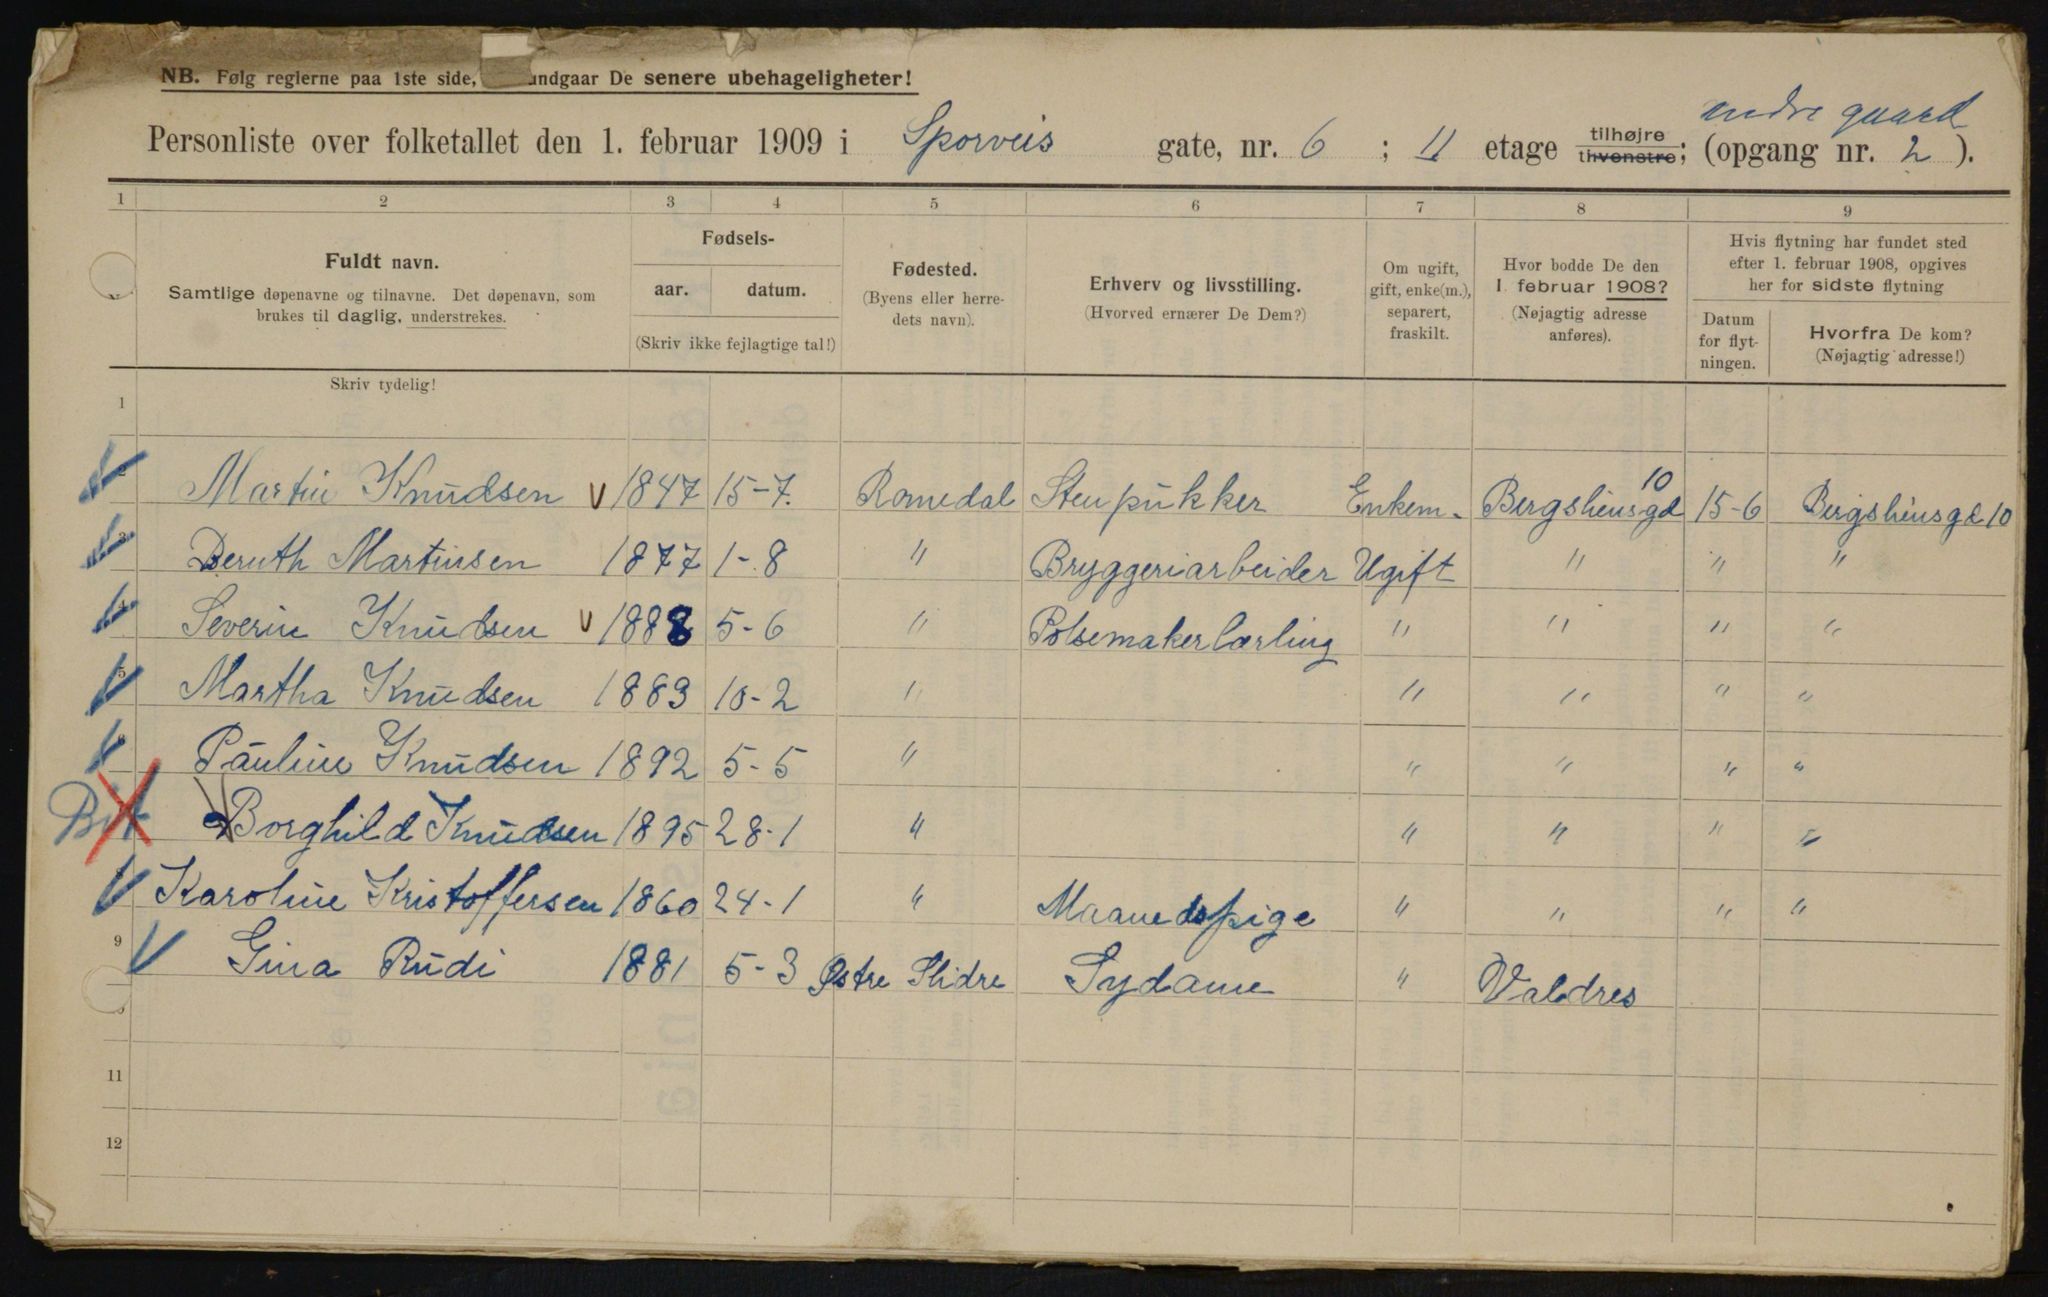 NB. Følg reglerne paa 1ste side, undgaar De senere ubehageligheter!
indre gaard
Personliste over folketallet den 1. februar 1909 i Sporveis gate, nr. 6 ; II etage tilhøjre thvenstre; (opgang nr. 2 ).
1 2 3 4 5 6 7 8 9
Fuldt navn.
Samtlige døpenavne og tilnavne. Det døpenavn, som
brukes til daglig, understrekes.
Skriv tydelig!
Fødsels-
aar. datum.
(Skriv ikke fejlagtige tal!)
Fødested.
(Byens eller herre-
dets navn).
Erhverv og livsstilling.
(Hvorved ernærer De Dem?)
Om ugift,
gift, enke(m.),
separert,
fraskilt.
Hvor bodde De den
1. februar 1908?
(Nøjagtig adresse
anføres).
Hvis flytning har fundet sted
efter 1. februar 1908, opgives
her for sidste flytning
Datum
for flyt-
ningen.
Hvorfra De kom?
(Nøjagtig adresse!)
1
2 Martin Knudsen v 1847 15-7. Romedal Stenpukker Enkem. Bergsliensgd 10 15-6 Bergsliensgd 10
3 Beruth Martinsen 1877 1-8 " Bryggeriarbeider Ugift " " "
4 Severin Knudsen v 1888 5-6 " Pølsemakerlærling " " " "
5 Martha Knudsen 1883 10-2 " " " " "
6 Pauline Knudsen 1892 5-5 " " " " "
Borghild Knudsen 1895 28-1 " " " " "
Karoline Kristoffersen 1860 24-1 " Maanedspige " " " "
9 Gina Rudi 1881 5-3 Østre Slidre Sydame " Valdres
11
12